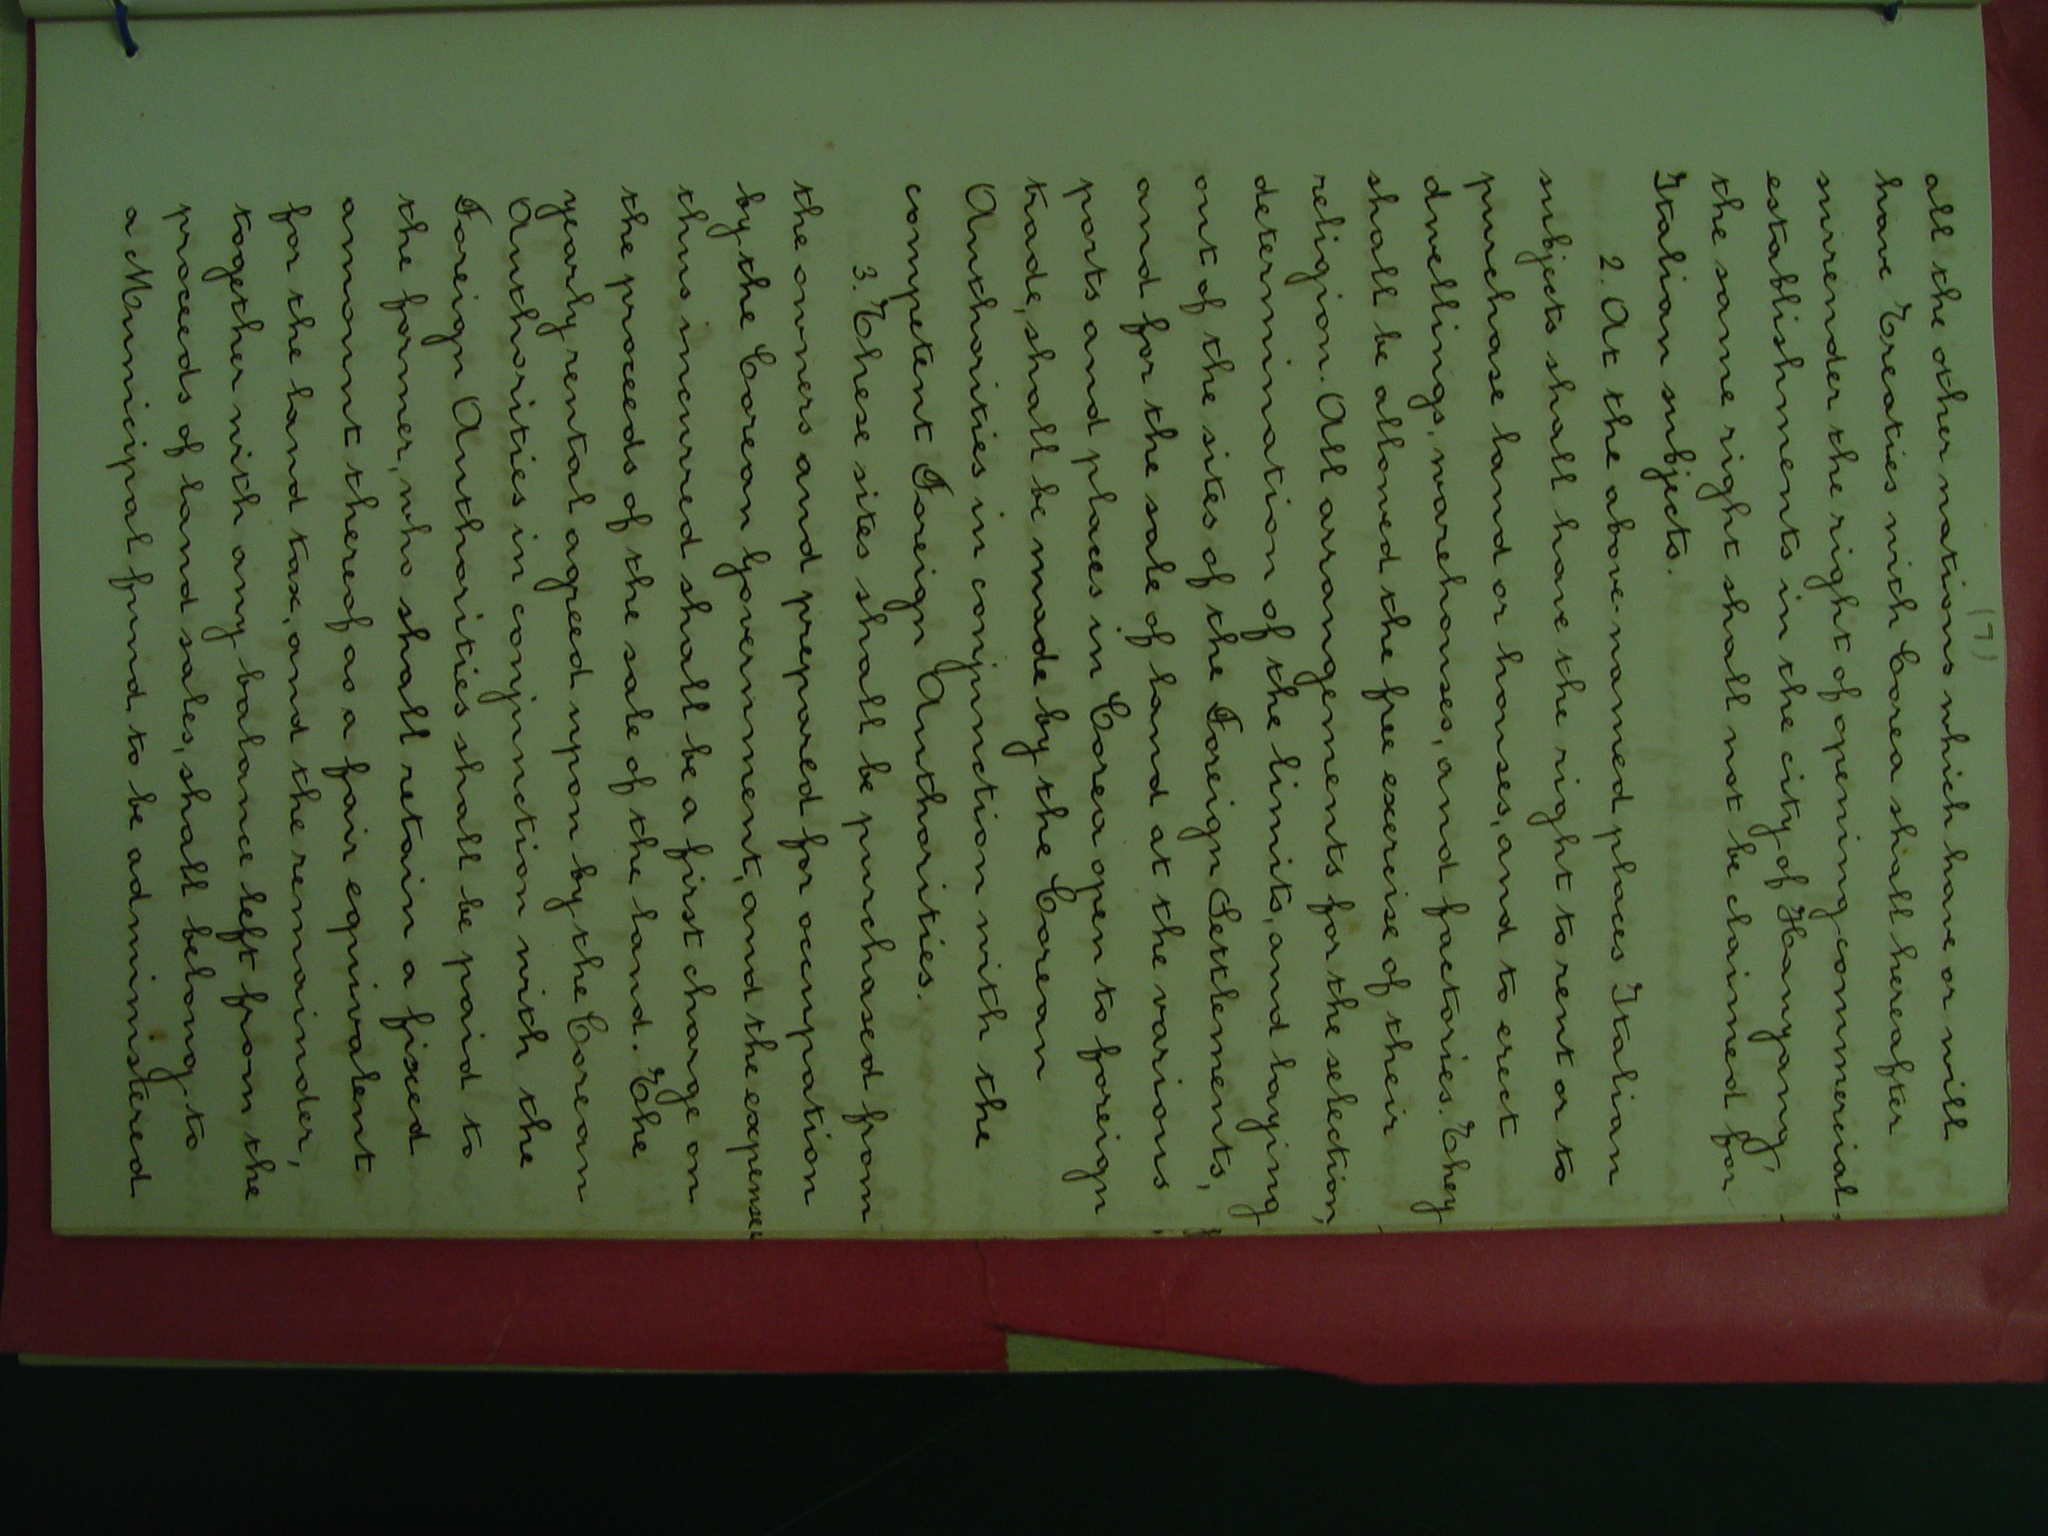 (7)
all the other nations which have or will
have Treaties with Corea shall hereafter
surrender the right of opening commercial
establishments in the city of Hanyang,
the same right shall not be claimed for
Italian subjects.
2. At the above-named places Italian
subjects shall have the right to rent or to
purchase land or houses, and to erect
dwellings, warehouses, and factories. They
shall be allowed the free exercise of their
religion. All arrangements for the selection,
determination of the limits, and laying
out of the sites of the Foreign Settlements,
and for the sale of land at the various
ports and places in Corea open to foreign
trade, shall be made by the Corean
Authorities in conjunction with the
competent Foreign Authorities.
3. These sites shall be purchased from
the owners and prepared for occupation
by the Corean Government, and the expense
thus incurred shall be a first charge on
the proceeds of the sale of the land. The
yearly rental agreed upon by the Corean
Authorities in conjunction with the
Foreign Authorities shall be paid to
the former, who shall retain a fixed
amount thereof as a fair equivalent
for the land tax, and the remainder,
together with any balance left from the
proceeds of land sales, shall belong to
a Municipal fund to be administered